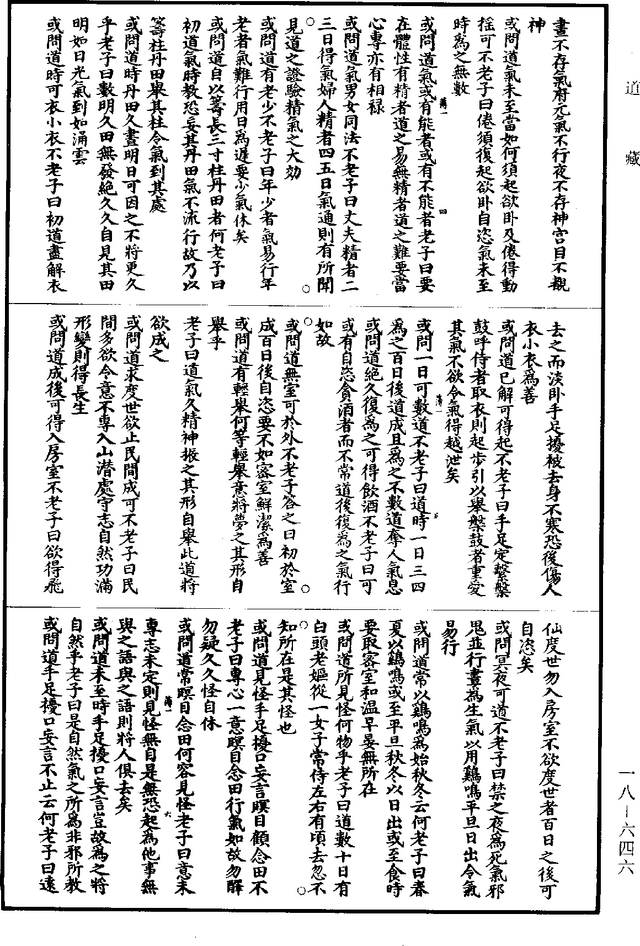 道藏
晝不存氣府元氣不行夜不存神宮目不覩
神
或問道氣未至當如何須起欲卧及倦得動
徭可不老子曰倦須復起欲卧自恣氣未至
時為之無數
或問道氣或有能者或有不能者老子曰要
在體性有精者道之易無精者道之難要當
心專亦有相祿
或問道氣男女同法不老子曰丈夫精者二
三日得氣婦人精者四五日氣通則有所聞
見道之證驗精氣之大効
或問道有老少不老子曰年少者氣易行年
老者氣難行用日為遲要少氣休矣
或問道自以籌長三寸柱丹田者何老子曰
初道氣時教恐妄其丹田氣不流行故乃以
籌柱丹田舉其柱令氣到其處
或問道時丹田久晝明日可因之不將更久
乎老子曰數明久田無發絕久久自見其田
明如日光氣到如涌雲
或問道時可衣小衣不老子曰初道盡解衣
去之而淡卧手足擾被去身不寒恐後傷人
衣小衣為善
或問道已解可得起不老子曰手足定槃槃
鼓呼侍者取衣則起步引以舉槃鼓者重愛
其氣不欲令氣得越泄矣
或問一日可數道不老子曰道時一日三四
為之百日後道成且為之不數道奪人氣息
或問道絕久復為之可得飲酒不老子曰可
或有自恣貪酒者而不常道後復為之氣行
如故
或問道無室可於外不老子答之曰初於室
成百日後自恣要不如密室鮮潔為善
或問道有輕舉何等輕舉意將夢之其形自
舉乎
老子曰道氣久精神振之其形自舉此道將
欲成之
或問道求度世欲止民間成可不老子曰民
間多欲令意不專入山潜處守志自然功滿
形變則得長生
或問道成後可得入房室不老子曰欲得飛
仙度世勿入房室不欲度世者百日之後可
自恣矣
或問冥夜可道不老子曰禁之夜為死氣邪
鬼並行晝為生氣以用鷄鳴平旦日出令氣
易行
或問道常以鷄鳴為始秋冬云何老子曰春
夏以鷄鳴或至平旦秋冬以日出或至食時
要取密室和温早晏無所在
或問道所見怪何物乎老子曰道數十日有
白頭老嫗從一女子常侍左右有頃去忽不
知所在是其怪也
或問道見怪手足擾口妄言瞑目顧念田不
老子曰專心一意瞑目念田行氣如故勿解
勿疑久久怪自休
或問道常瞑目念田何容見怪老子曰意未
專志未定則見怪無自是無恐起為他事無
與之語與之語則將人俱去矣
或問道未至時手足擾口妄言豈故為之將
自然乎老子曰是自然氣之所為非邪所教
或問道手足擾口妄言不止云何老子曰遠
一八－六四六